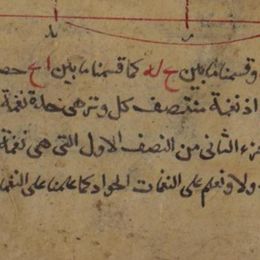 وقسمنا ما بين ح له كما قسمنا ما بين ا ح
اذ نغمة منتصف كل وتر هى حدة نغمة
جزء الثانى من النصف الاول التى هى نغمة
ولا ونعلم على النغمات الحواد كما علمنا على النغما